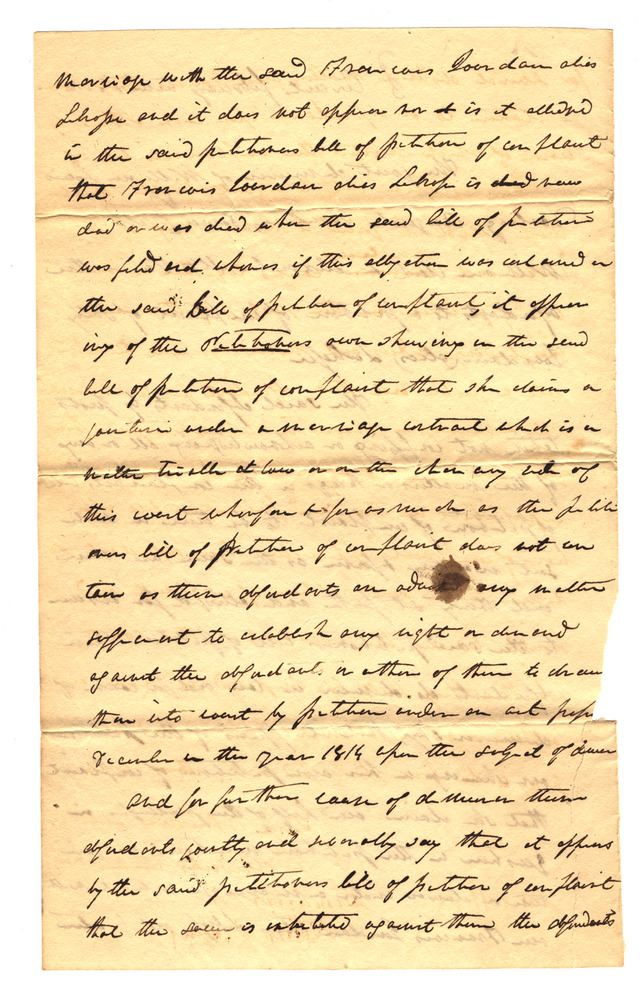 marriage with the said Francois Jourdan alies
Lehope and it does not appear nor is it alledged
in the said petitioners bill of petition of complaint
that Francois Jourdan alies Lehope is now
dead or was dead when the said bill of petition
was filed and whereas if this allegation was contained in
the said bill of petition of complaint, it appear
ing of the Petitioners own shewing in the said
bill of petition of complaint that she claims a
jointure under a marriage contract which is a
matter triable at law or on the chancery side of
this court wherefore & for as much as the petiti
oners bill of petition of complaint does not con
tain as these defendants are any matter
sufficient to establish any right or demand
against the defendants or either of them to draw
them into court by petition under an act
December in the year 1814 upon the subject of dower
and for further cause of demurrer these
defendants jointly and severally say that it appears
by the said petitioners bill of petition of complaint
that the same is exhibited against them the defendants